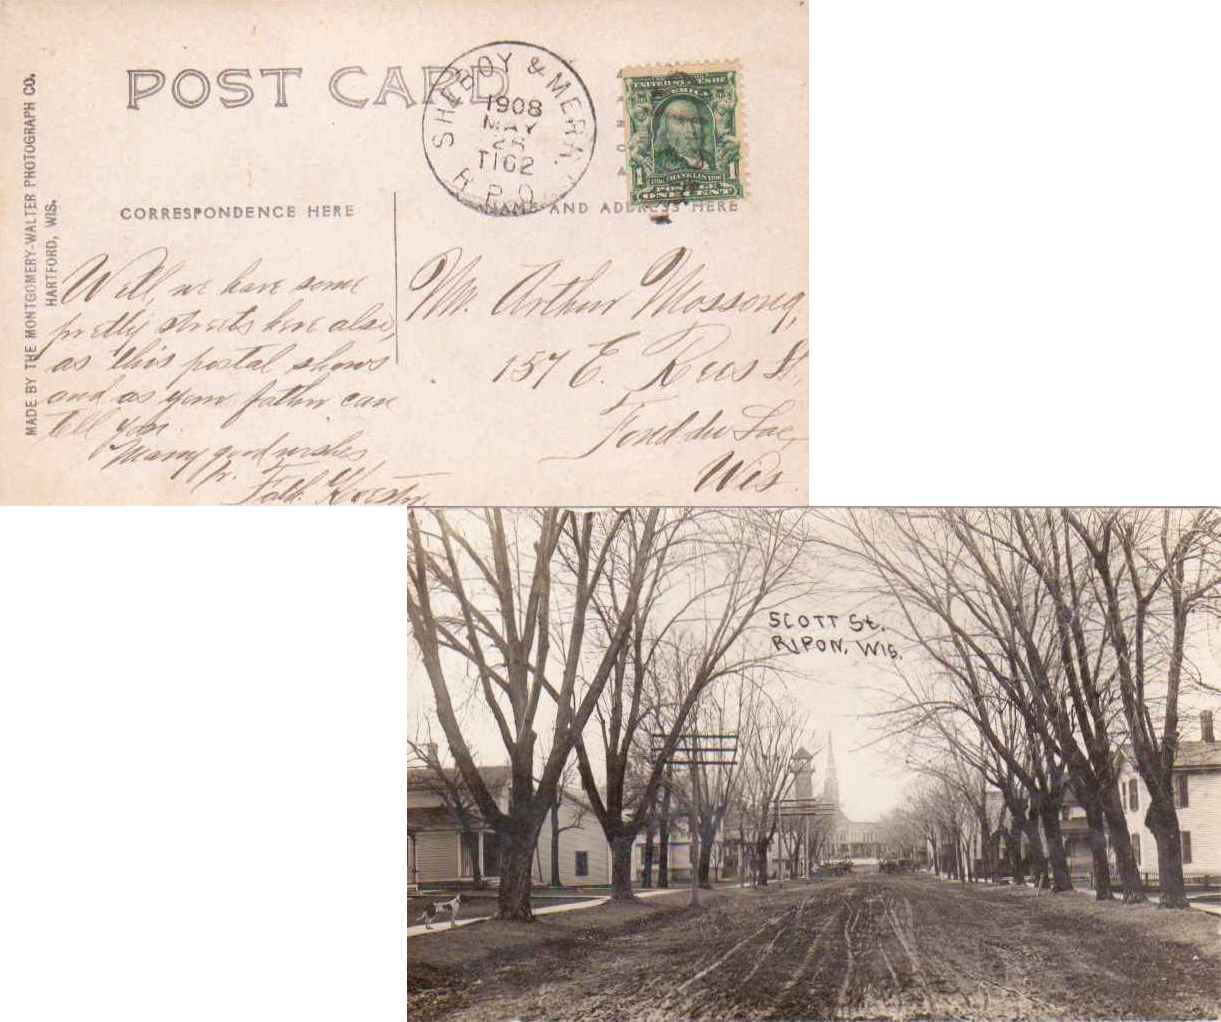 POST CARD
SHEBOY & MERR.
1908
MAY
T102
R.P.O.
UNITED STATES OF AMERICA
FRANKLIN
1 1
POSTAGE
ONE CENT
MADE BY THE MONTGOMERY-WALTER PHOTOGRAPH CO.
HARTFORD, WIS.
CORRESPONDENCE HERE
NAME AND ADDRESS HERE
Well, we have some
pretty streets here also,
as this postal shows
and as your father can
tell you.
Many good wishes
fr.
Mr. Arthur Mossong,
157 E. Rees St.,
Fond du Lac,
Wis.
SCOTT St.
RIPON, WIS.